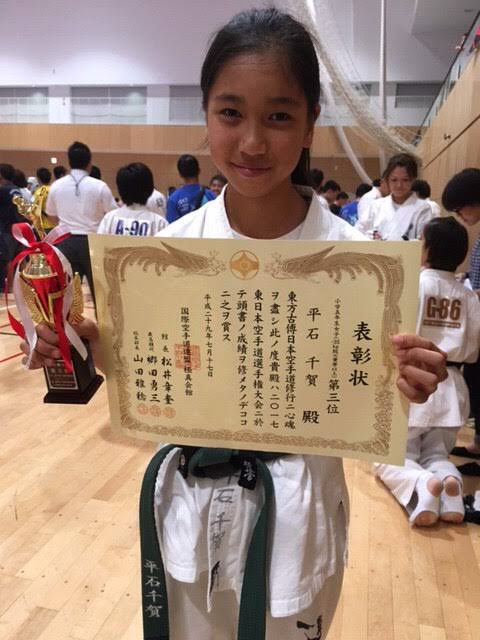 表彰状
第三位
平石 千賀 殿
東方古傳日本空手道修行ニ心魂
ヲ盡シ此ノ度貴殿ハ二〇一七
東日本空手道選手権大会ニ於
テ頭書ノ成績ヲ修メタノデココ
ニ之ヲ賞ス
平成二十九年七月十七日
国際空手道連盟 極真会館
館長 松井章奎
郷田勇三
山田雅稔
A-90
G-86
平石千賀
平石千賀